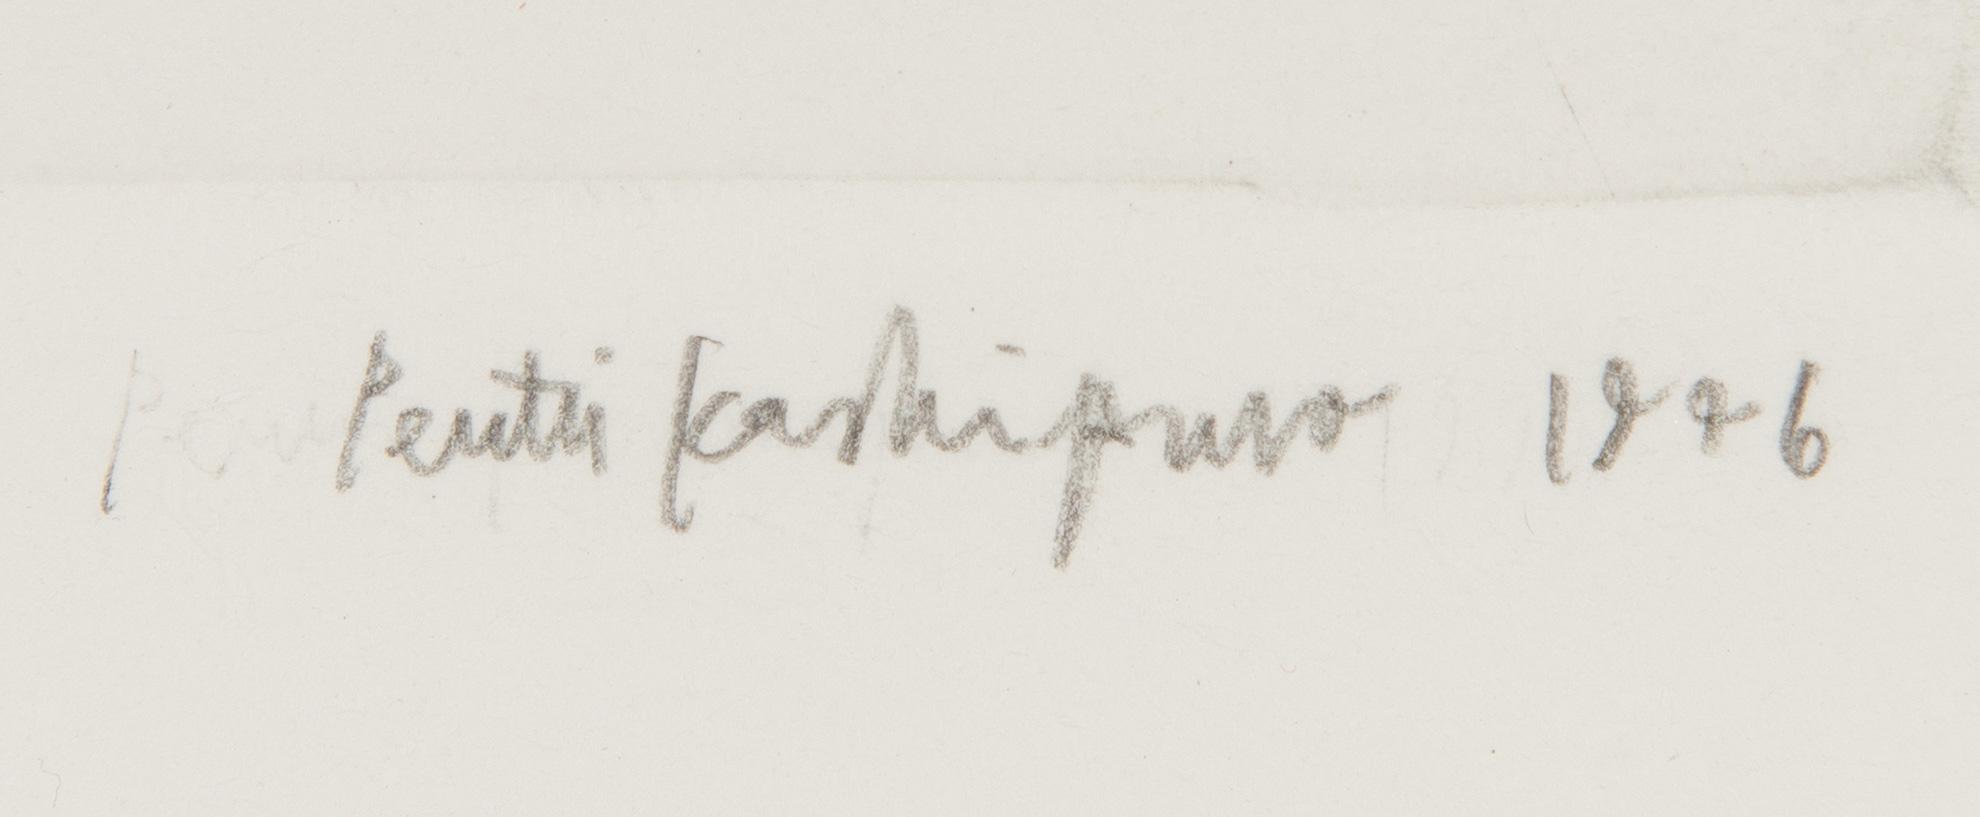 Pentti Kaskipuro 1996